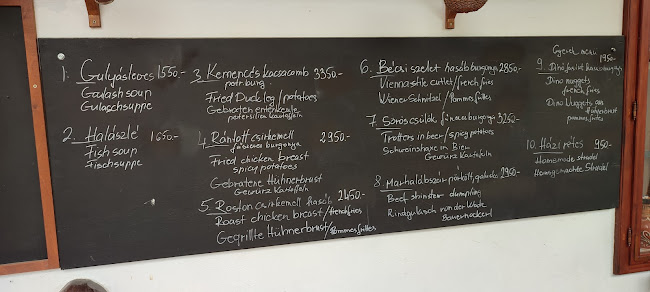 1. Gulyásleves 1550.-
Goulash soup
Gulaschsuppe
2. Halászlé 1650.-
Fish soup
Fischsuppe
3. Kemencés kacsacomb 3350.-
petr. burg.
Fried Duck leg/potatoes
Gebraten entenkeule
petersilien Kartoffeln
4. Rántott csirkemell 2950.-
fűszeres burgonya
Fried chicken breast
spicy potatoes
Gebratene Hühnerbrust
Gewürz Kartoffeln
5. Roston csirkemell hasáb 2450.-
Roast chicken breast/french fries
Gegrillte Hühnerbrust/Pommes frittes
6. Bécsi szelet hasáb burgonya 2850.-
Vienna stile cutlet/french fries
Wiener Schnitzel/Pommes frittes
7. Sörös csülök fűszeres burgonya 3250.-
Trotters in beer/spicy potatoes
Schweinshaxe in Bier
Gewürz Kartoffeln
8. Marhalábszár pörkölt, galuska 2950.-
Beef shin stew dumpling
Rindgulasch von der Wade
Bauernockerl
Gyerek menü
9. Dinó falatok hasáb burgonya 1950.-
Dino nuggets
french fries
Dino Nuggets aus
Hühnerbrust
pommes frittes
10. Házi rétes 950.-
Homemade strudel
Hausgemachte Strudel